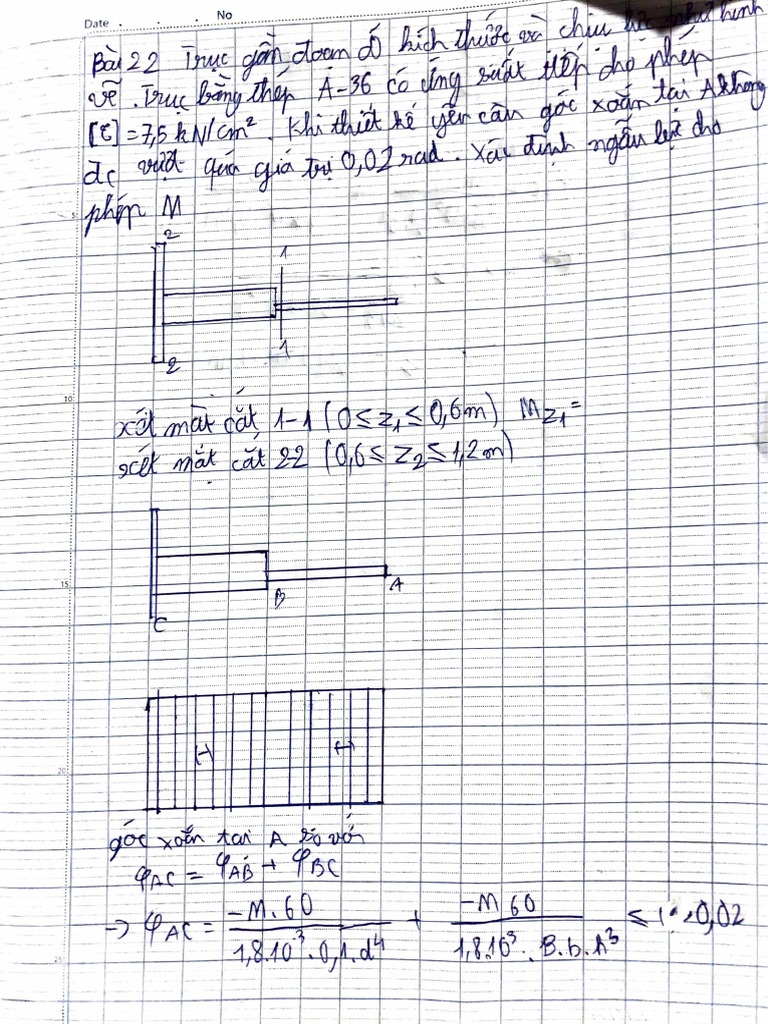 Date . . . No
Bài 22 Trục gồm đoạn có kích thước và chịu lực như hình
vẽ. Trục bằng thép A-36 có ứng suất tiếp cho phép
[τ] = 7,5 kN/cm². Khi thiết kế yêu cầu góc xoắn tại A không
đc vượt quá giá trị 0,02 rad. Xác định ngẫu lực cho
phép M
5
2
1
1
2
10
xét mặt cắt 1-1 (0 ≤ z₁ ≤ 0,6m) M_Z1 =
xét mắt cắt 22 (0,6 ≤ Z₂ ≤ 1,2m)
15
A
B
C
(-) (-)
20
góc xoắn tại A so với
φ_AC = φ_AB + φ_BC
→ φ_AC = -M.60 / 1,8.10³.0,1.d⁴ + -M 60 / 1,8.10³. B.b.h³ ≤ 0,02
25